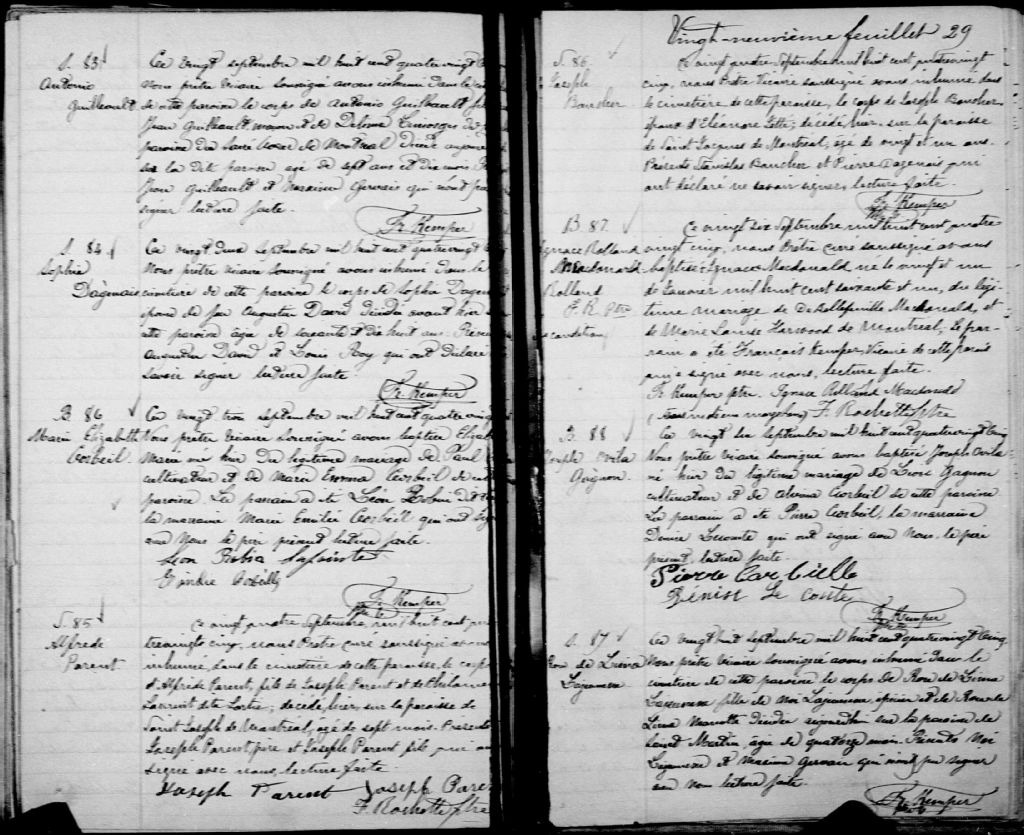 S. 83
Antonio
Guilbeault
Ce vingt septembre mil huit cent quatre vingt
Nous prêtre vicaire soussigné avons inhumé dans le
de cette paroisse le corps de Antonio Guilbeault fils
Jean Guilbeault, maçon et de Delima
paroisse du Sacré Coeur de Montréal
sur la dite paroisse agé de sept ans et dix mois
Jean Guilbeault et Maxime Gervais qui n'ont pu
signer lecture faite.
Fr Kemper
S. 84
Sophie
Dagenais
Ce vingt deux septembre mil huit cent quatre vingt
Nous prêtre vicaire soussigné avons inhumé dans le
cimetière de cette paroisse le corps de Sophie Dagenais
épouse de feu Augustin David décédée avant hier
cette paroisse agée de soixante et dix huit ans
Augustin David et Louis Roy qui ont déclaré
savoir signer lecture faite.
Fr Kemper
B 86
Marie Elizabeth
Corbeil
Ce vingt trois septembre mil huit cent quatre vingt
Nous prêtre vicaire soussigné avons baptisé
Marie née hier du légitime mariage de Paul
cultivateur et de Marie Emma Corbeil de cette
paroisse Le parrain a été Léon
la marraine Marie Emilie Corbeil qui ont
avec Nous le père présent lecture faite.
Leon
Fr Kemper
Ptre
S. 85
Alfred
Parent
Ce vingt quatre Septembre, mil huit cent
trevingt cinq, nous Prêtre curé soussigné avons
inhumé, dans le cimetière de cette paroisse, le corps
d'Alfred Parent, fils de Joseph Parent et de
Laurent dite Lortie; décédé, hier, sur la paroisse de
Saint Joseph de Montréal, âgé de sept mois. Présents
Joseph Parent, père et Joseph Parent fils, qui
signé avec nous, lecture faite
Joseph Parent Joseph Parent
F. Rochette Ptre
Vingt-neuvième feuillet 29
S. 86
Joseph
Boucher
Ce vingt quatre Septembre mil huit cent quatre vingt
cinq, nous Prêtre Vicaire soussigné avons inhumé dans
le cimetière de cette paroisse, le corps de Joseph Boucher,
époux d'Eléanore; décédé hier sur la paroisse
de Saint Jacques de Montréal, âgé de vingt et un ans.
Présents Stanislas Boucher et Pierre Dagenais qui
ont déclaré ne savoir signer, lecture faite.
Fr Kemper
Ptre
B. 87
Ignace Rolland
Macdonald
Rolland
F. R. Ptre
Ce vingt six Septembre mil huit cent quatre
vingt cinq, nous Prêtre curé soussigné avons
baptisé Ignace Macdonald né le vingt et un
de Janvier mil huit cent soixante et un, du légi-
time mariage de De Bellefeuille Macdonald, et
de Marie Louise Harwood de Montréal; Le par-
rain a été François Kemper, Vicaire de cette parois
qui a signé avec nous, lecture faite.
Fr Kemper ptre. Ignace Rolland Macdonald
F. Rochette Ptre
B. 88
Joseph Ovila
Gagnon.
Ce vingt six septembre mil huit cent quatre vingt cinq
Nous prêtre vicaire soussigné avons baptisé Joseph Ovila
né hier du légitime mariage de Gagnon
cultivateur et de Corbeil de cette paroisse
Le parrain a été Pierre Corbeil, la marraine
Denise Lecomte qui ont signé avec Nous. le père
présent, lecture faite.
Pierre Carbeille
Denise Le Conte
Fr Kemper
Ptre
S. 87
Rose de Lima
Lajeunesse
Ce vingt huit septembre mil huit cent quatre vingt cinq
Nous prêtre vicaire soussigné avons inhumé dans le
cimetière de cette paroisse le corps de Rose de Lima
Lajeunesse fille de Noé Lajeunesse, épicier et de Rose de
Lima Marcotte décédée aujourd'hui sur la paroisse de
Saint Martin, agée de quatorze mois. Présents Noé
Lajeunesse et Maxime Gervais qui n'ont pu signer
avec Nous lecture faite.
Fr Kemper
ptre